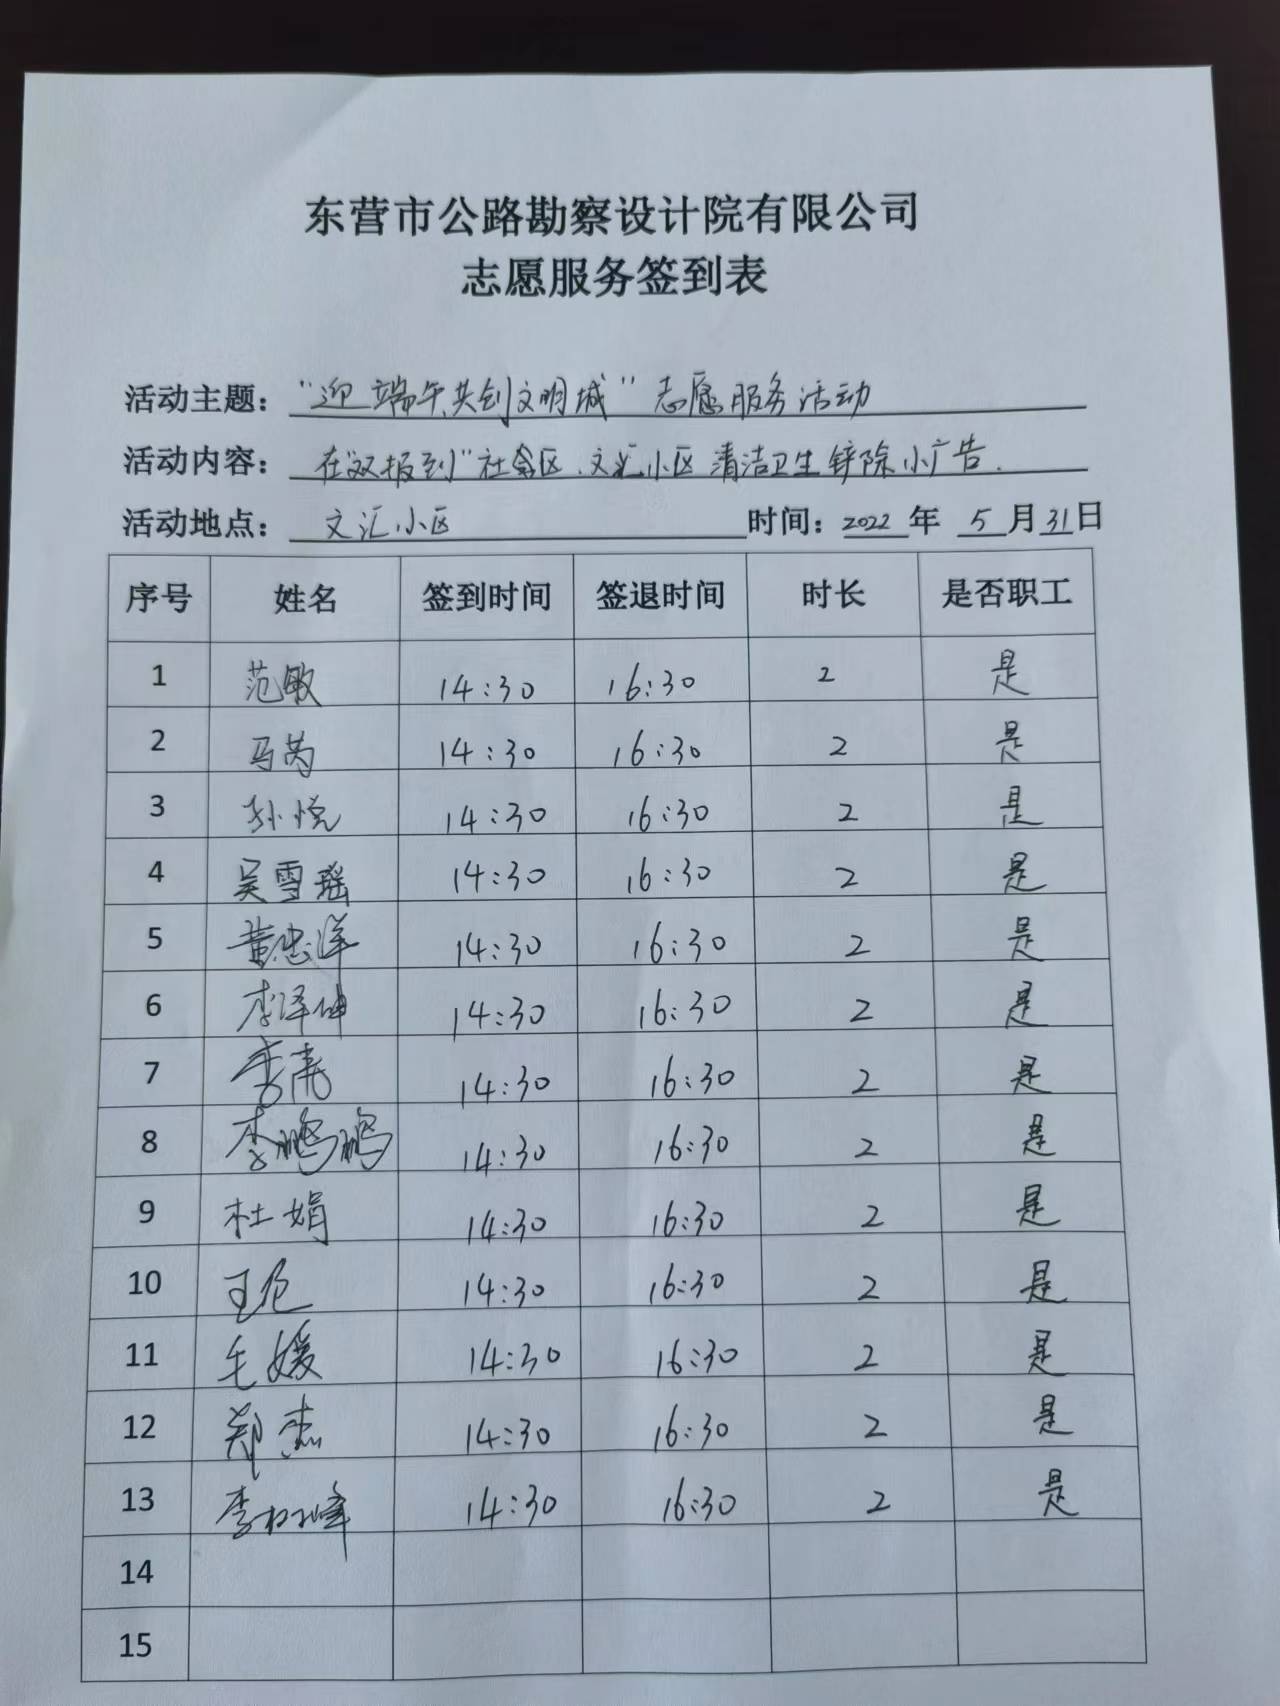 东营市公路勘察设计院有限公司
志愿服务签到表
活动主题：“迎端午共创文明城”志愿服务活动
活动内容：在“双报到”社会区、文汇小区清洁卫生铲除小广告.
活动地点：文汇小区 时间：2022年5月31日
序号 姓名 签到时间 签退时间 时长 是否职工
1 范敏 14:30 16:30 2 是
2 马芮 14:30 16:30 2 是
3 孙悦 14:30 16:30 2 是
4 吴雪瑶 14:30 16:30 2 是
5 黄忠洋 14:30 16:30 2 是
6 李泽坤 14:30 16:30 2 是
7 李 14:30 16:30 2 是
8 李鹏鹏 14:30 16:30 2 是
9 杜娟 14:30 16:30 2 是
10 王 14:30 16:30 2 是
11 毛媛 14:30 16:30 2 是
12 郑杰 14:30 16:30 2 是
13 李树峰 14:30 16:30 2 是
14
15